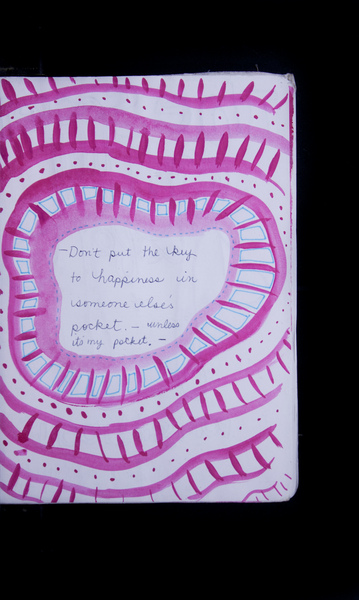 - Don't put the key
to happiness in
someone else's
pocket. - unless
its my pocket. -